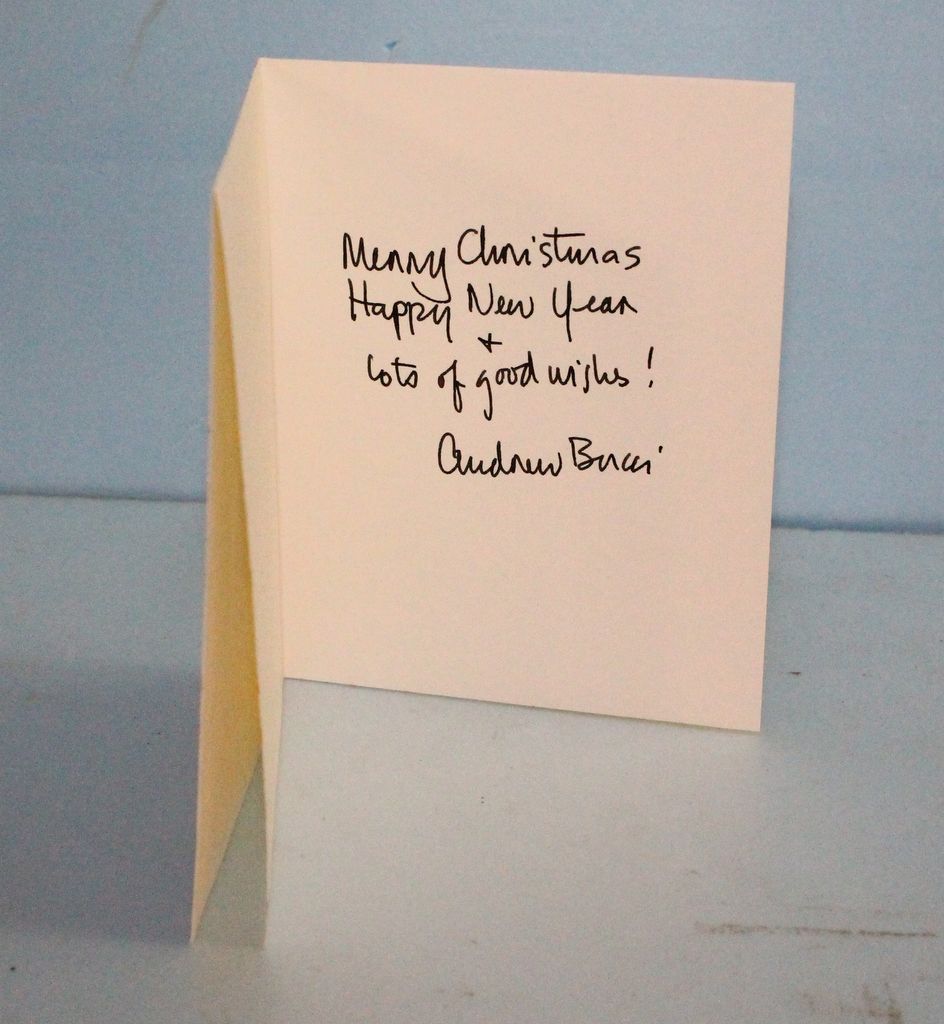 Merry Christmas
Happy New Year
+
lots of good wishes!
Andrew Bucci